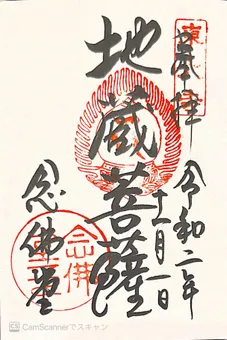 奉拝
令和二年
十一月一日
地蔵菩薩
念佛堂
念佛
CamScannerでスキャン